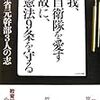 我、
自衛隊を愛す
故に、
憲法9条を守る
省元幹部3人の志